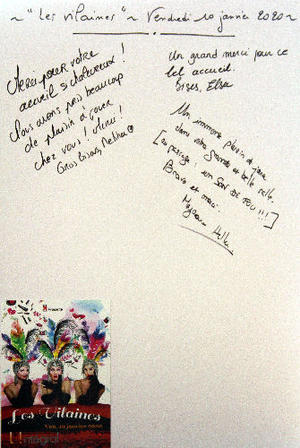 ~ " Les Vilaines " ~ Vendredi 10 janvier 2020 ~
Merci pour votre
accueil si chaleureux !
Nous avons pris beaucoup
de plaisir à jouer
chez vous ! Merci !
Gros bisous,
Un grand merci pour ce
bel accueil.
Bises, Elsa
Un immense plaisir de jouer
dans cette grande et belle salle.
[au passage : un SON DE FOU !!!]
Bravo et merci.
Les Vilaines